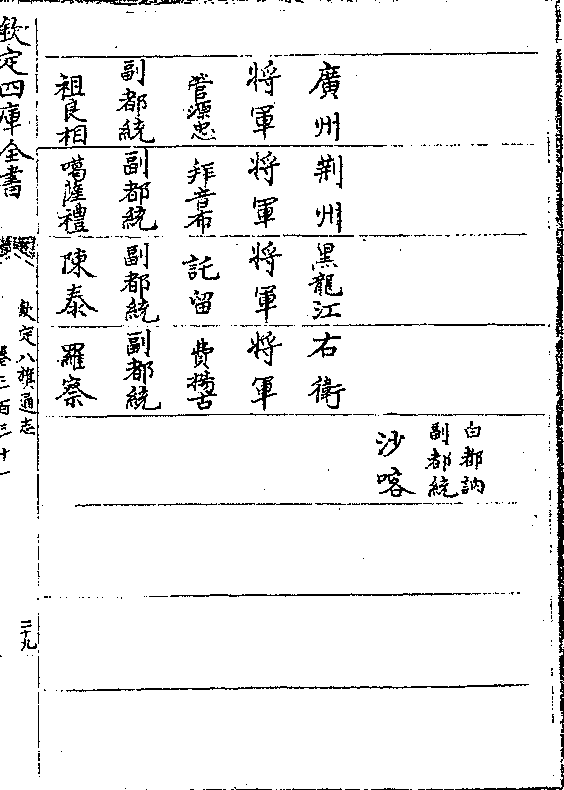 白都訥
副都統
沙喀
廣州 荆州 黑龍江 右衛
將軍 將軍 將軍 將軍
管源忠 拜音布 託留 費揚古
副都統 副都統 副都統 副都統
祖良相 噶薩禮 陳泰 羅察
欽定八旗通志
二十九
卷三百三十一
欽定四庫全書